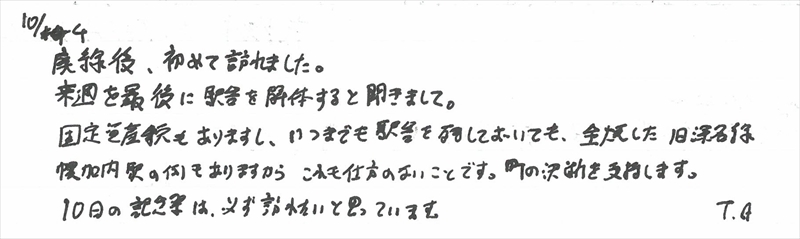 10/4
廃線後、初めて訪れました。
来週を最後に駅舎を解体すると聞きまして。
固定資産税もありますし、いつまでも駅舎を残しておいても、全焼した旧深名線
幌加内駅の例もありますから これも仕方のないことです。町の決断を支持します。
10日の記念日は、必ず訪れたいと思っています
T.A